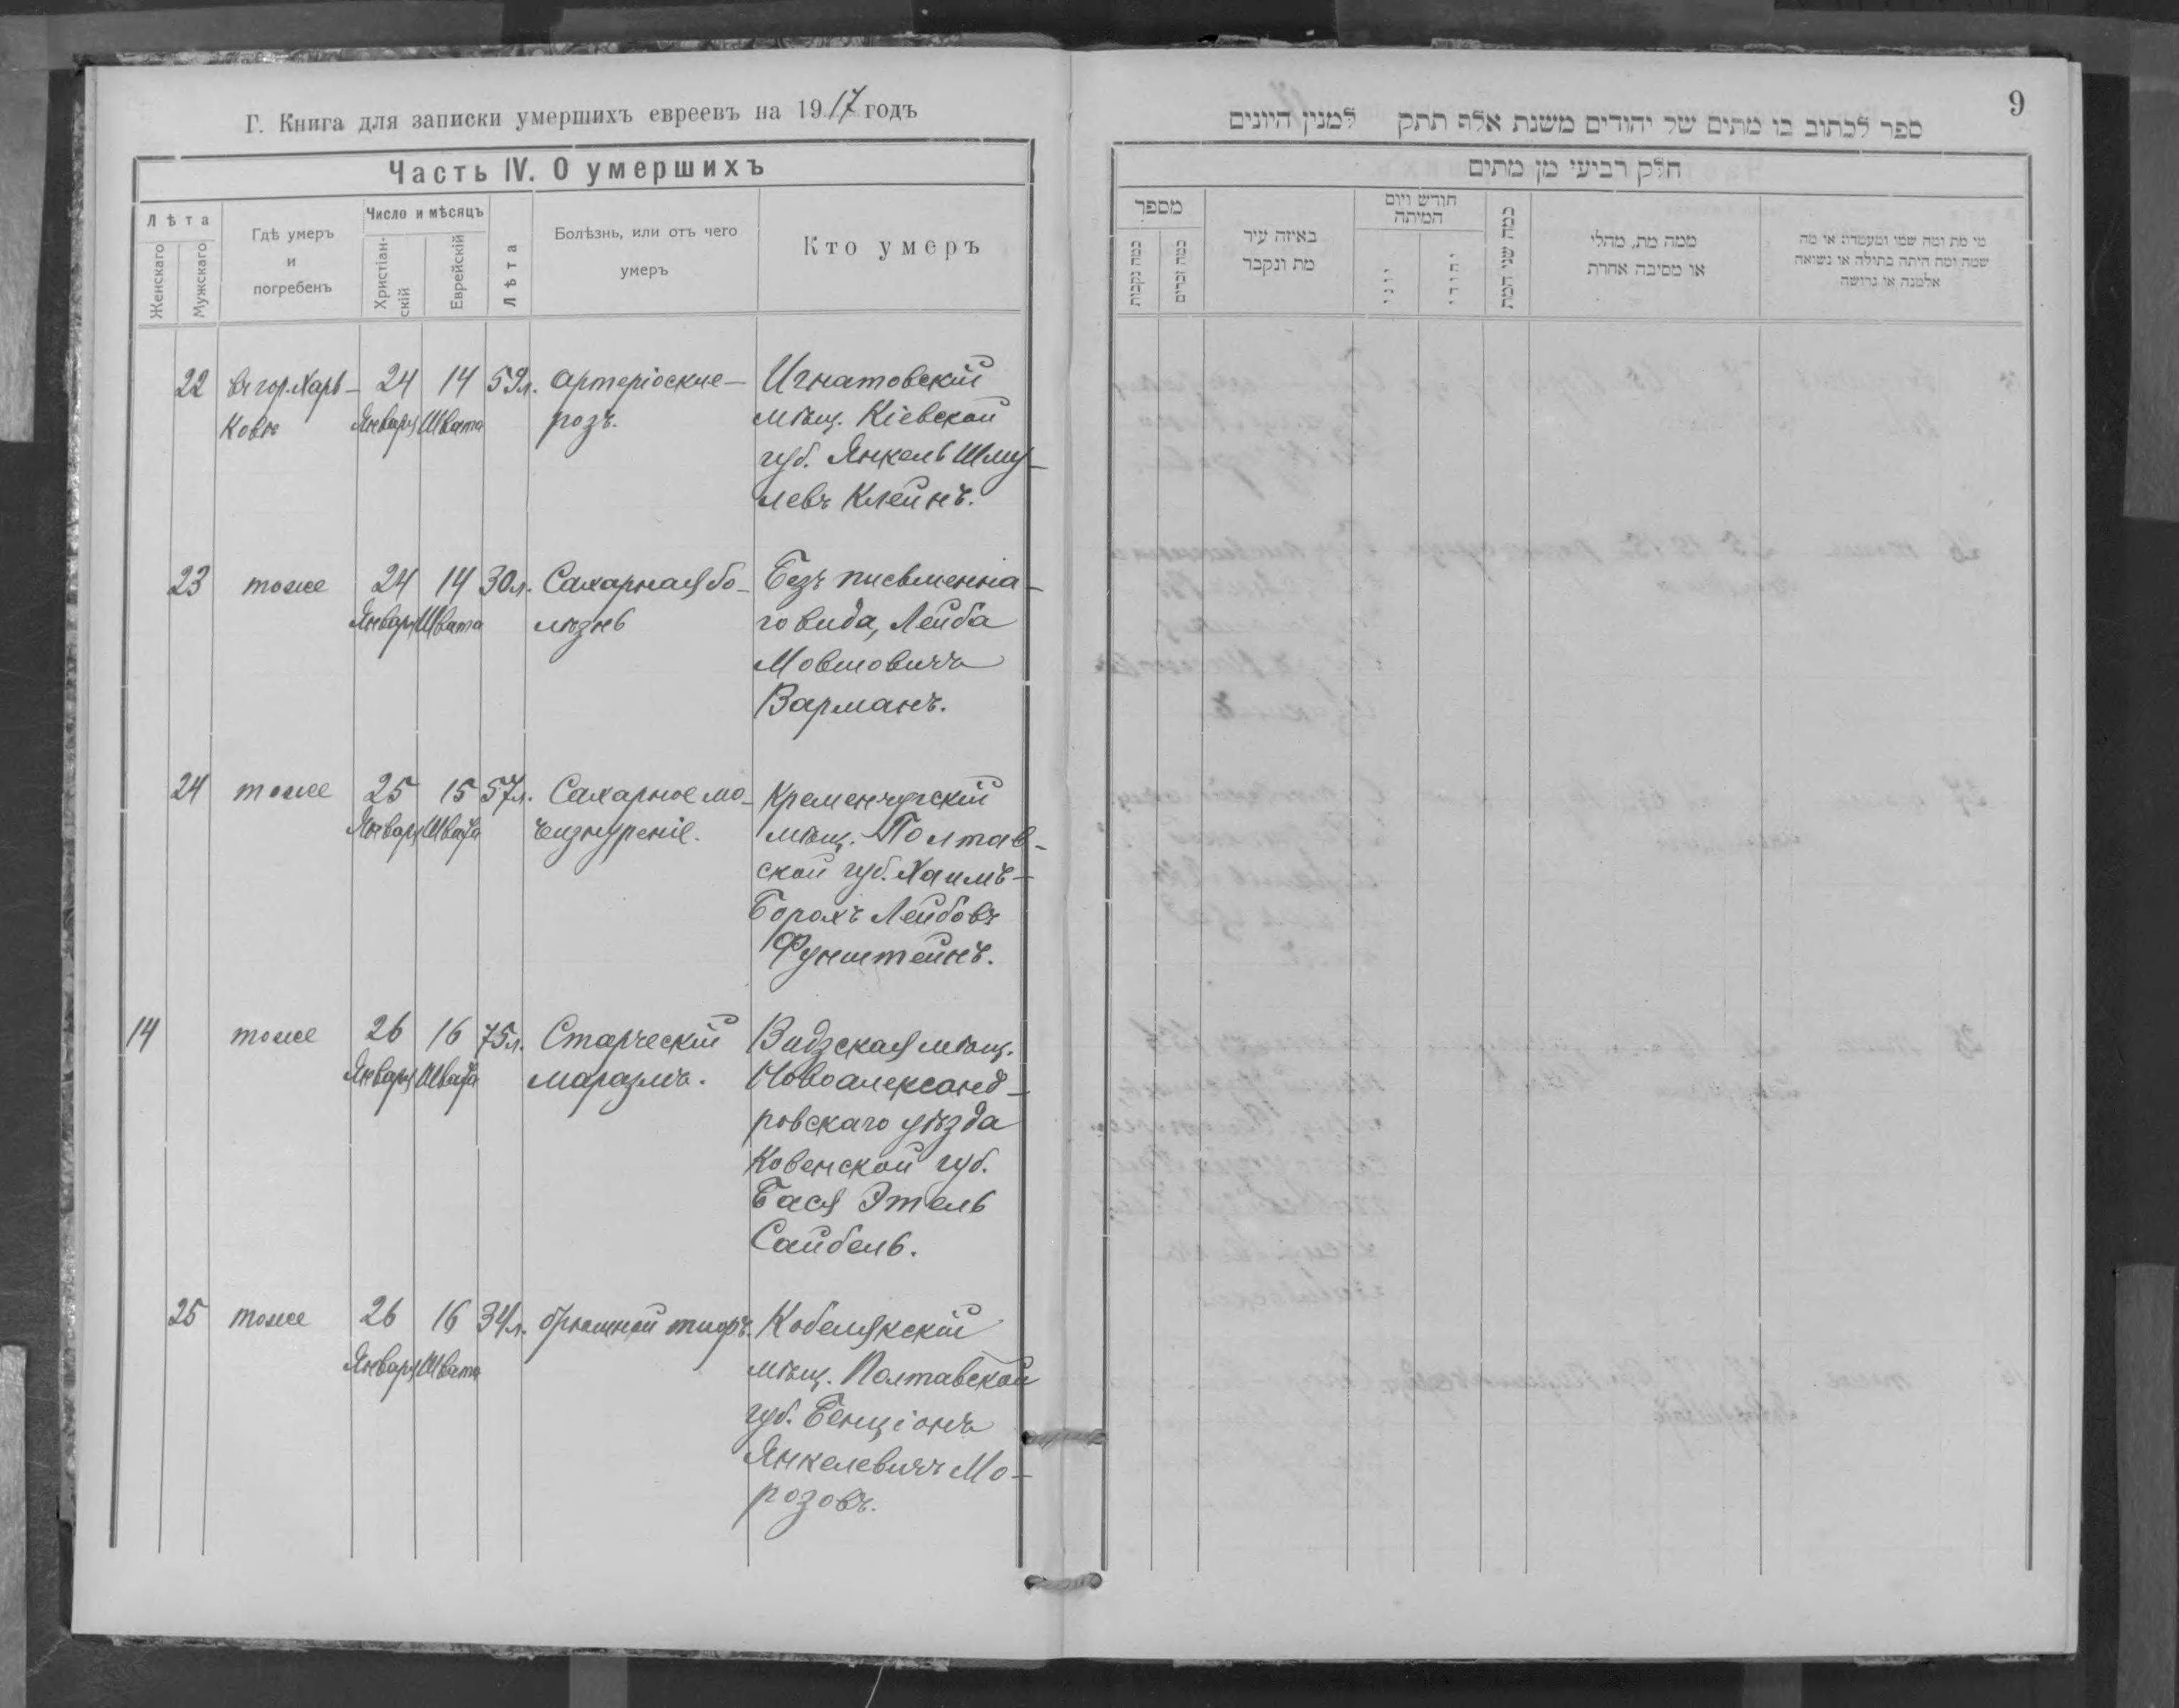 Г. Книга для записки умершихъ евреевъ на 1917 годъ
Часть IV. О умершихъ
Лѣта
Женскаго
Мужскаго
Гдѣ умеръ
и
погребенъ
Число и мѣсяцъ
Христіан-
скій
Еврейскій
Лѣта
Болѣзнь, или отъ чего
умеръ
Кто умеръ
22 въ гор. Харь- 24 14 59 л. Артеріоскле- Игнатовскій
ковѣ Января Швата розъ. мѣщ. Кіевской
губ. Янкель Шму-
левъ Клейнъ.
23 тоже 24 14 30 л. Сахарная бо- Безъ письменна-
Января Швата лѣзнь го вида, Лейба
Мовшовичъ
Варманъ.
24 тоже 25 15 57 л. Сахарное мо- Кременчугскій
Января Швата чеизнуреніе. мѣщ. Полтав-
ской губ. Хаимъ-
Борохъ Лейбовъ
Фунштейнъ.
14 тоже 26 16 75 л. Старческій Видзская мѣщ.
Января Швата маразмъ. Новоалександ-
ровскаго уѣзда
Ковенской губ.
Бася Этель
Сайбель.
25 тоже 26 16 34 л. брюшной тифъ. Кобелякскій
Января Швата мѣщ. Полтавской
губ. Бенціонъ
Янкелевичъ Мо-
розовъ.
9
ספר לכתוב בו מתים של יהודים משנת אלף תתק למנין היונים
חלק רביעי מן מתים
מספר
כמה נקבות
כמה זכרים
באיזה עיר
מת ונקבר
חודש ויום
המיתה
יוני
יהודי
כמה שני המת
ממה מת, מחלי
או מסיבה אחרת
מי מת ומה שמו ומעמדו או מה
שמה ומה היתה בתולה או נשואה
אלמנה או גרושה